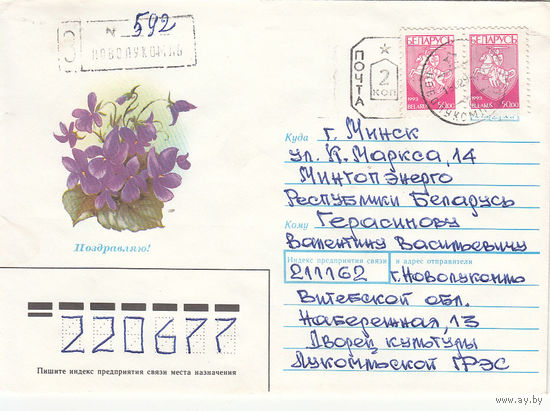 З
№ 592
НОВОЛУКОМЛЬ
ПОЧТА
2
КОП
БЕЛАРУСЬ БЕЛАРУСЬ
1993 1993
BELARUS 50.00 BELARUS 50.00
Куда г. Минск
ул. К. Маркса, 14
Минтопэнерго
Республики Беларусь
Кому Герасимову
Валентину Васильевичу
Индекс предприятия связи и адрес отправителя
211162 г. Новолукомль
Витебской обл.
Набережная, 13
Дворец культуры
Лукомльской ГРЭС
Поздравляю!
220677
Пишите индекс предприятия связи места назначения
www.ay.by